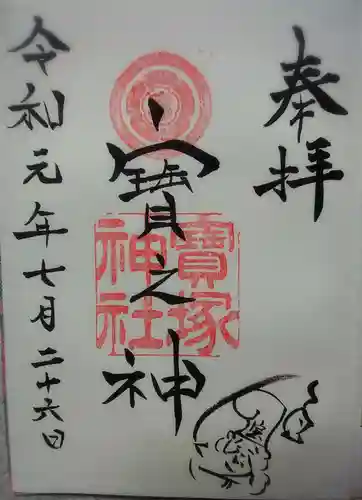 奉拝
寳之神
寳塚
神社
令和元年七月二十六日